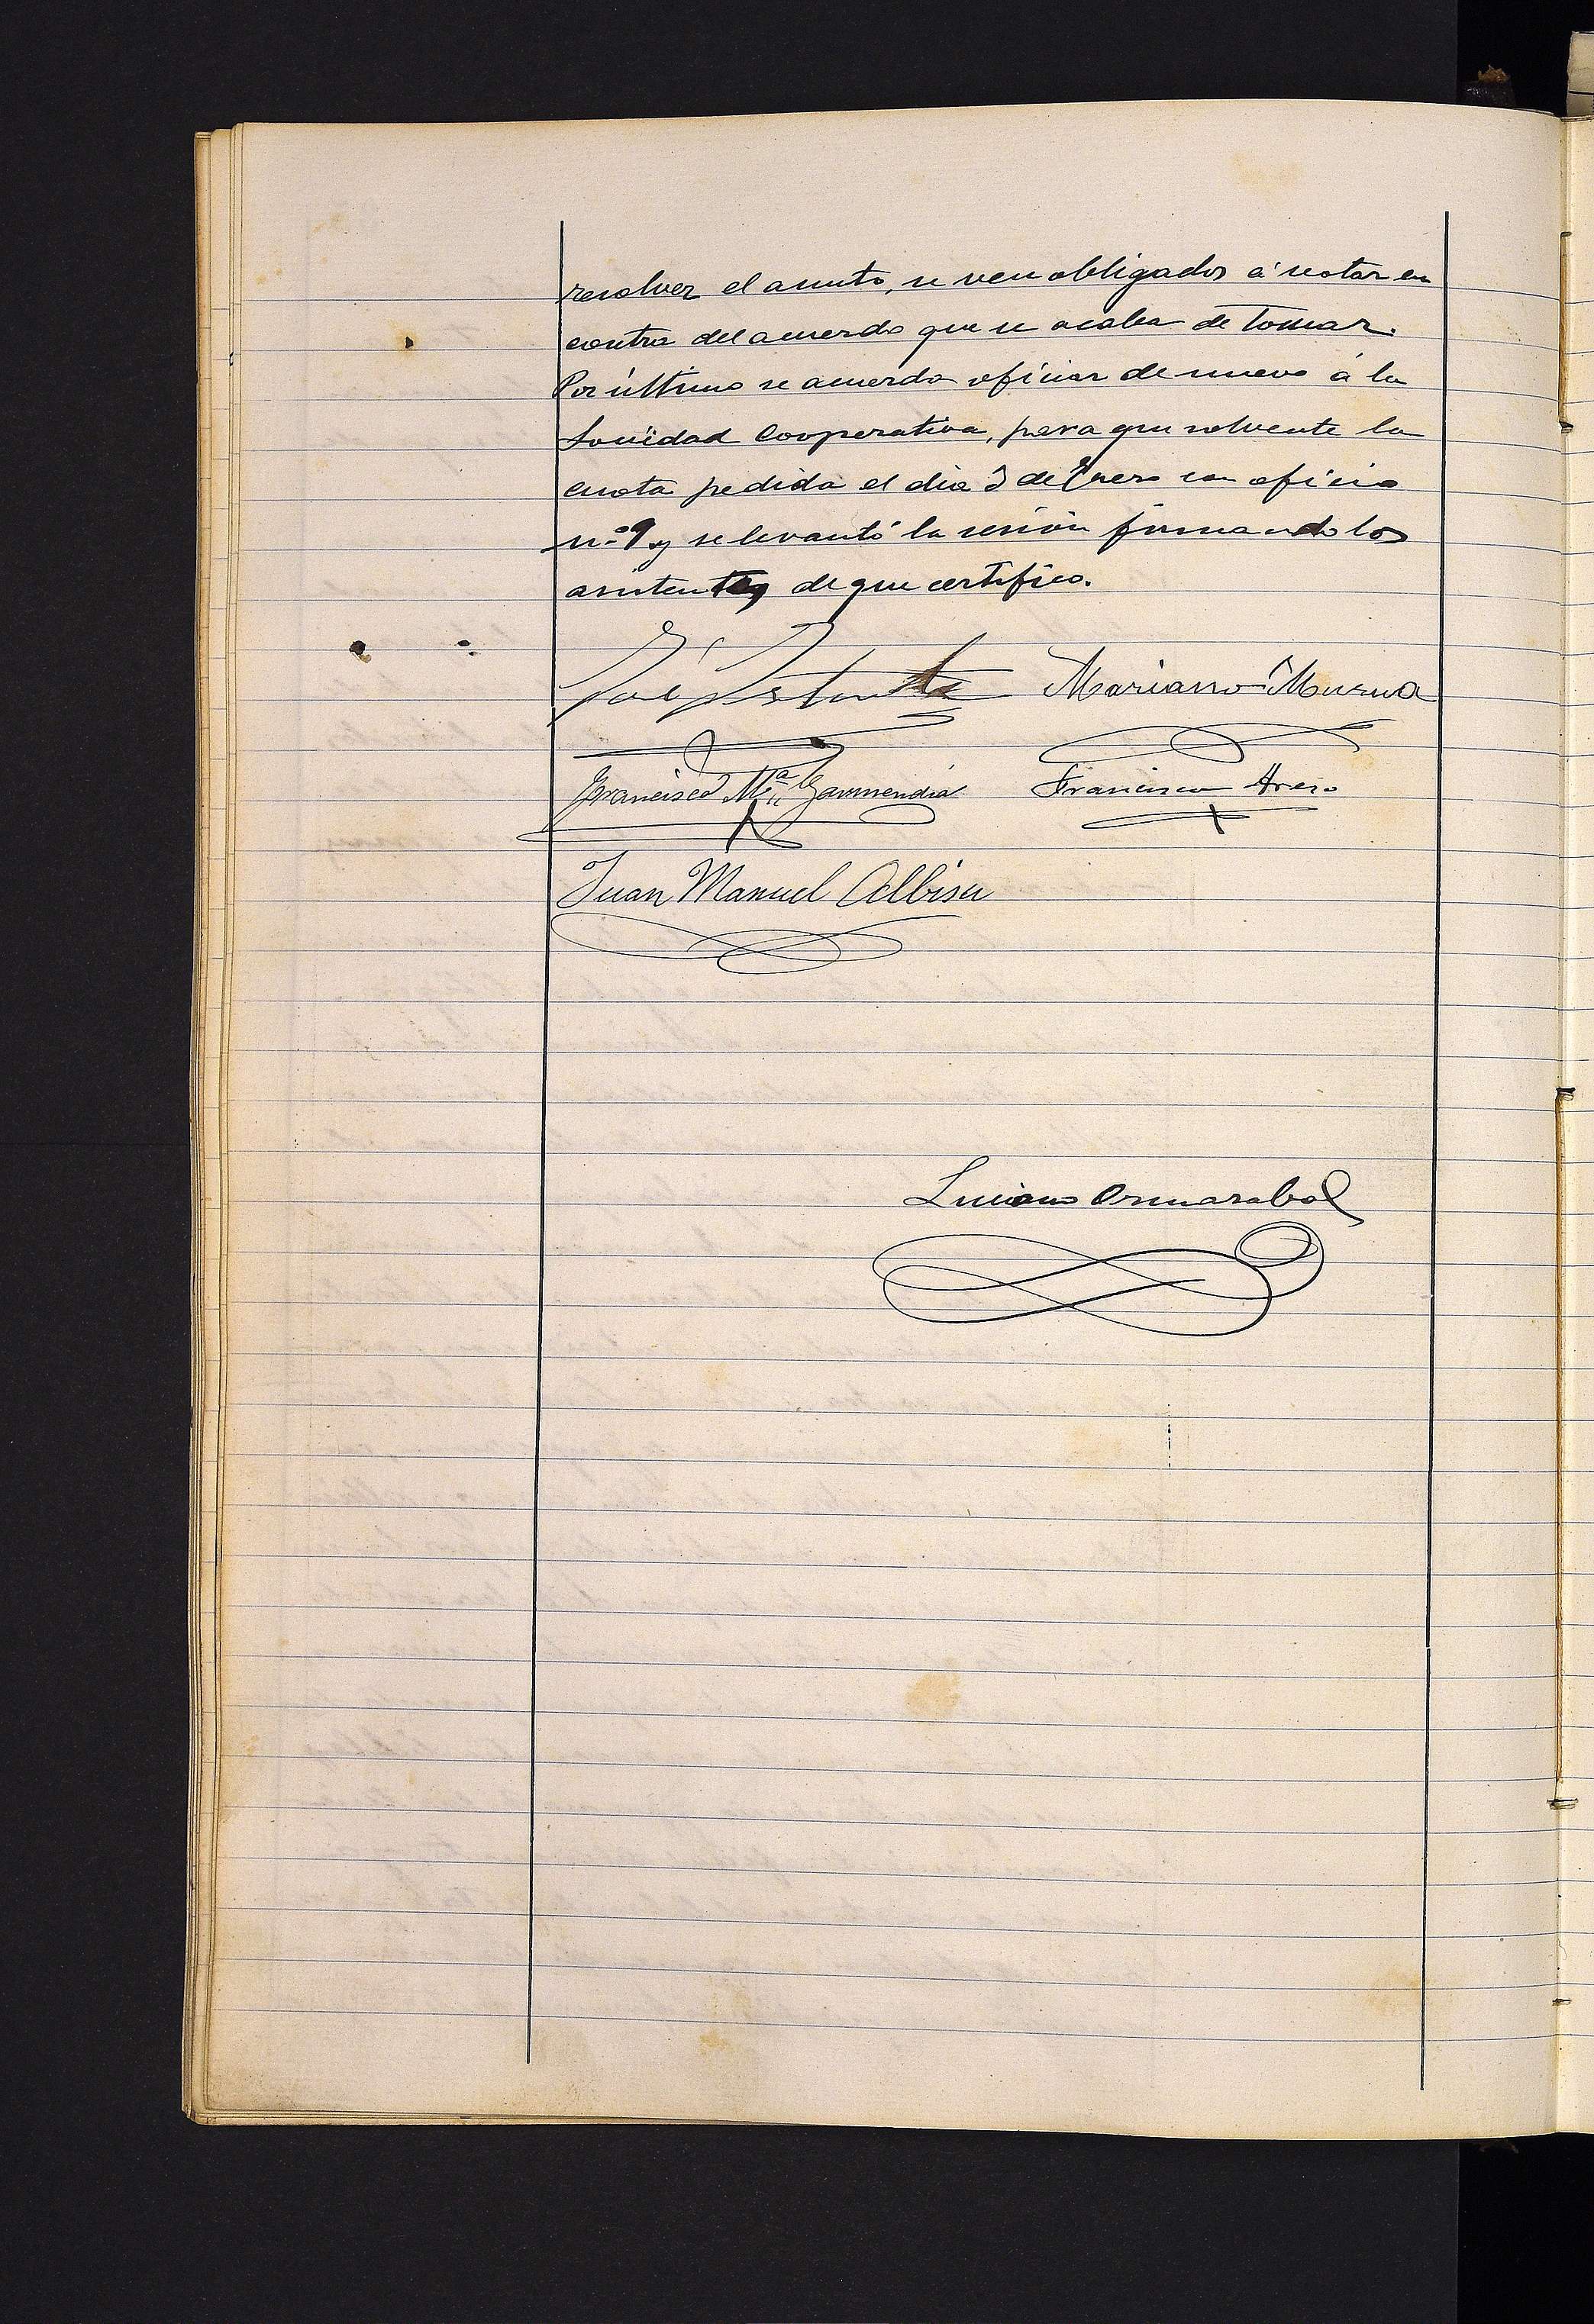 resolver el asunto, se ven obligados á votar en
contra del acuerdo que se acaba de tomar.
Por último se acuerda oficiar de nuevo á la
Sociedad Cooperativa, para que solvente la
cuota pedida el dia 3 de Enero con oficio
n.º 9 y se levantó la sesión firmando los
asistentes de que certifico.
José Mariano Murua
Francisco Mª Garmendia Francisco
Juan Manuel Albisu
Luciano Ormazabal